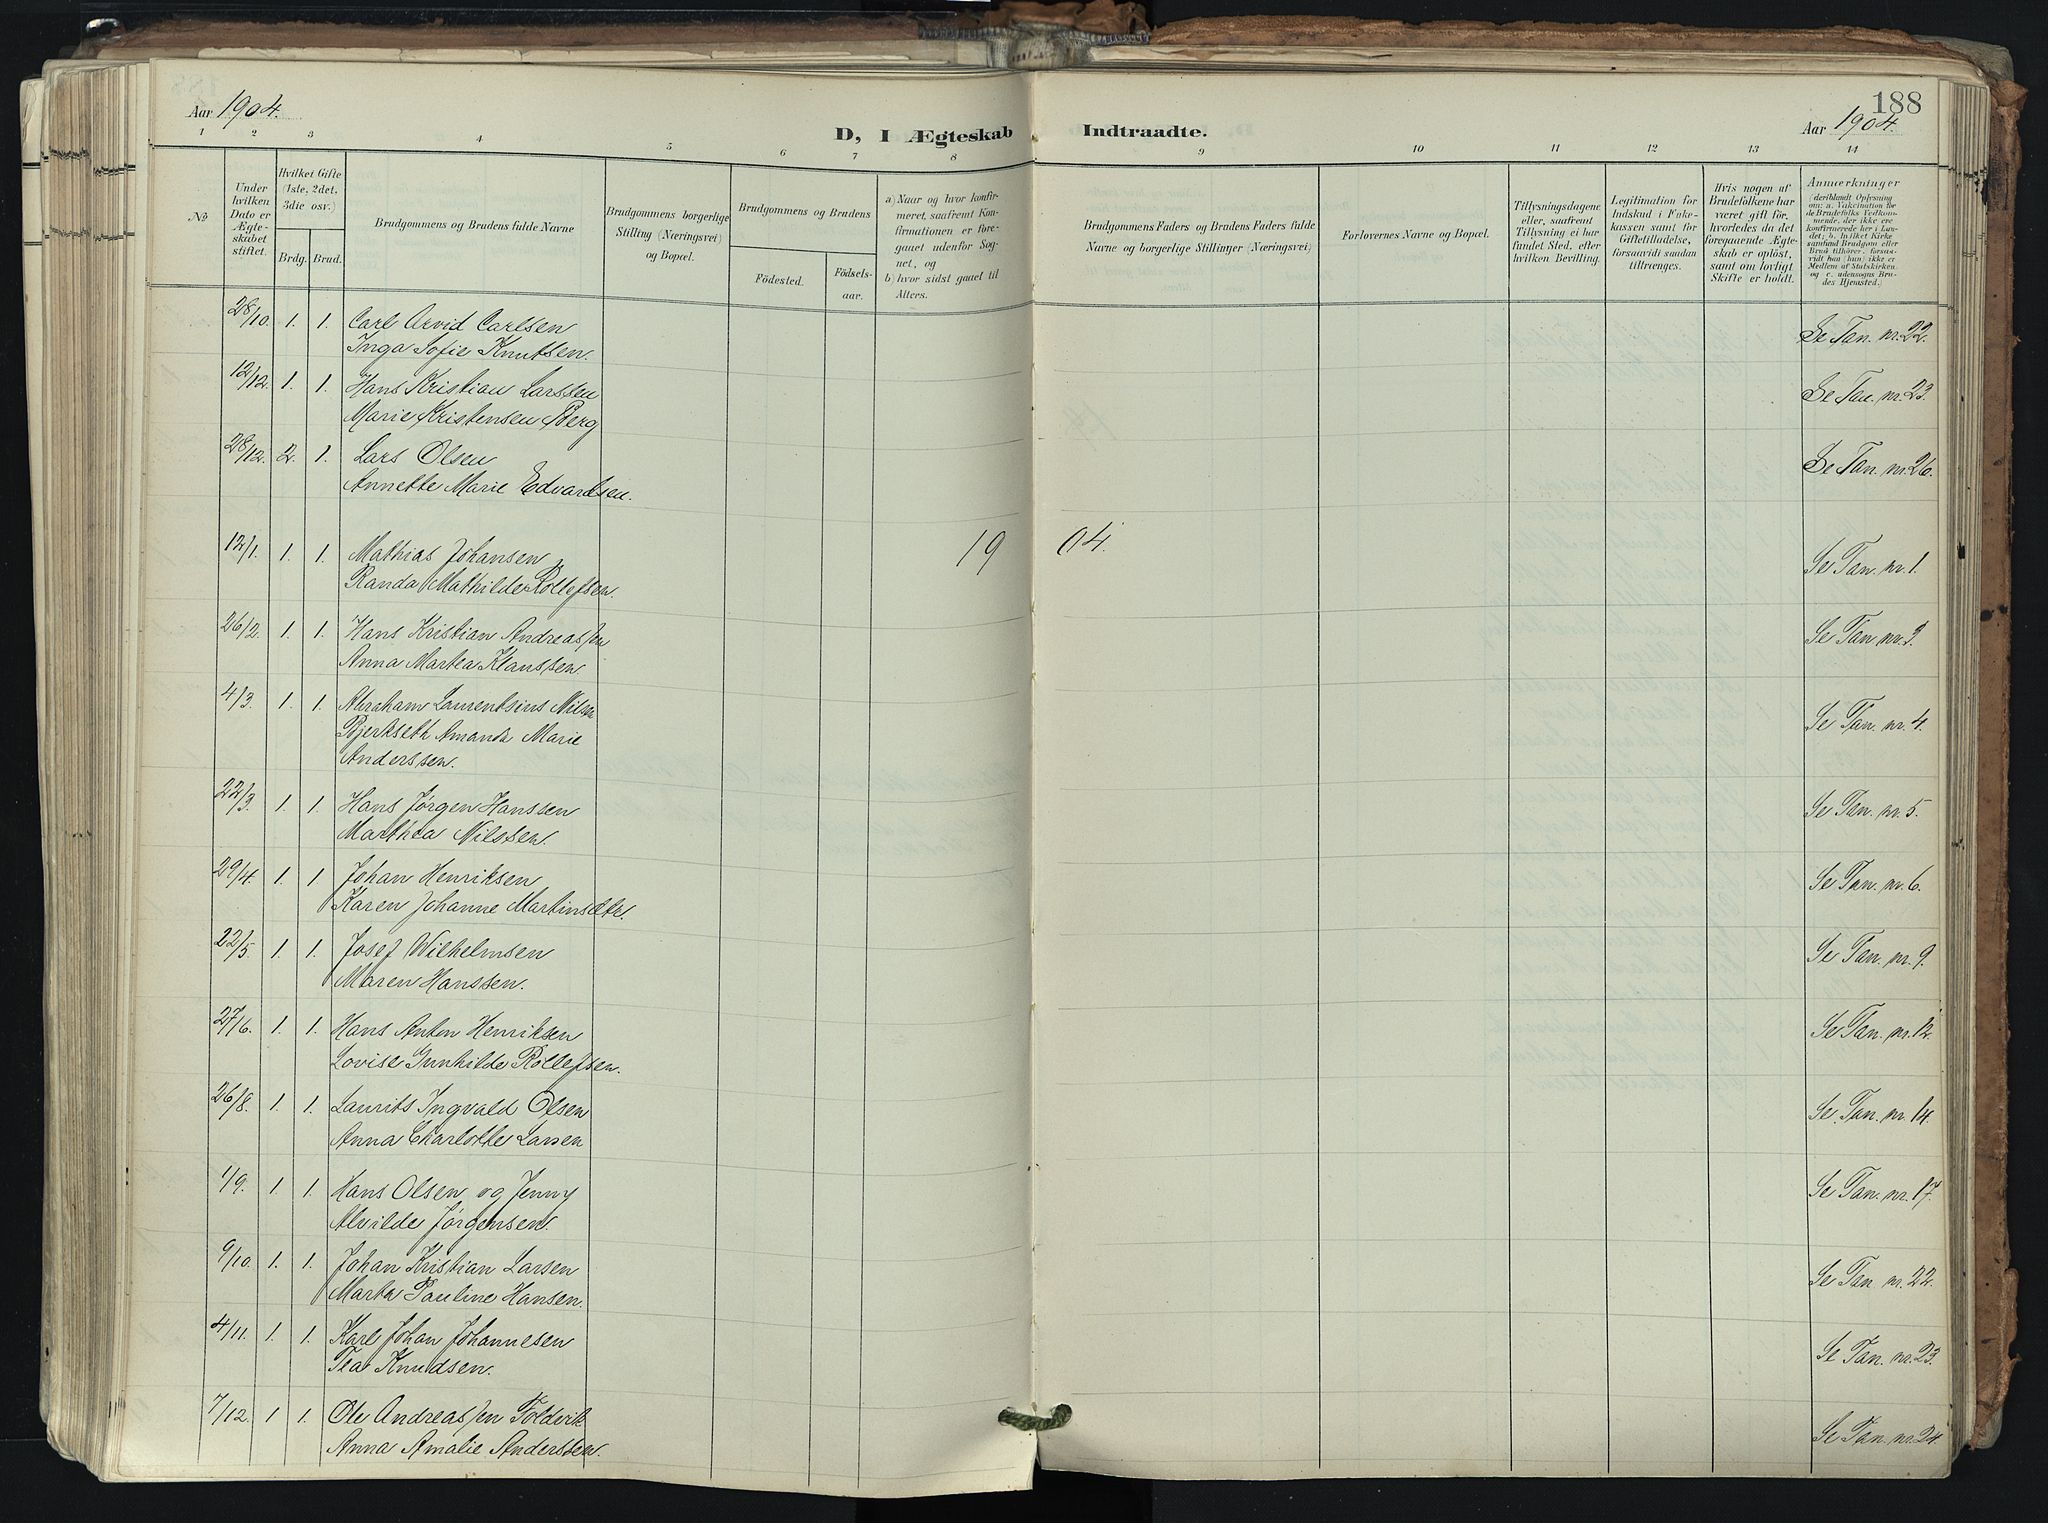 188
Aar 1904.
D, I Ægteskab Indtraadte.
Aar 1904.
1 2 3 4 5 6 7 8 9 10 11 12 13 14
No
Under hvilken Dato er Ægteskabet stiftet.
Hvilket Gifte (1ste, 2det, 3die osv.)
Brdg. Brud.
Brudgommens og Brudens fulde Navne
Brudgommens borgerlige Stilling (Næringsvei) og Bopæl.
Brudgommens og Brudens
Födested.
Födselsaar.
a) Naar og hvor konfirmeret, saafremt Konfirmationen er foregaaet udenfor Sognet, og
b) hvor sidst gaaet til Alters.
Brudgommens Faders og Brudens Faders fulde Navne og borgerlige Stillinger (Næringsvei)
Forlovernes Navne og Bopæl.
Tillysningsdagene eller, saafremt Tillysning ei har fundet Sted, efter hvilken Bevilling.
Legitimation for Indskud i Fakekassen samt for Giftetilladelse, forsaavidt saadan tiltrænges.
Hvis nogen af Brudefolkene har været gift för, hvorledes da det foregaaende Ægteskab er oplöst, samt om lovligt Skifte er holdt.
Anmerkninger (deriblandt Oplysning om: a. Vakcination for de Brudefolks Vedkommende, der ikke ere konfirmerede her i Landet; b. hvilket Kirkesamfund Brudgom eller Brud tilhörer, forsaavidt han (hun) ikke er Medlem af Statskirken og c. udensogns Brudes Hjemsted.)
28/10. 1. 1. Carl Arvid Carlsen
Inga Sofie Knutsen. Se Tan. nr. 22.
12/12. 1. 1. Hans Kristian Larssen
Marie Kristensen Berg Se Tan. nr. 23.
28/12. 2. 1. Lars Olsen
Annette Marie Edvardsen. Se Tan. nr. 26.
1904.
12/1. 1. 1. Mathias Johansen
Randa Mathilde Rollefsen. Se Tan. nr. 1.
26/2. 1. 1. Hans Kristian Andreassen
Anna Martea Klaussen. Se Tan nr.
4/3. 1. 1. Abraham Laurentsius Nilsen
Bjerkseth Amanda Marie
Anderssen. Se Tan. nr. 4.
22/3. 1. 1. Hans Jørgen Hanssen
Marthea Nilssen. Se Tan. nr. 5.
29/4. 1. 1 Johan Henriksen
Karen Johanne Se Tan. nr. 6.
22/5. 1. 1. Josef Wilhelmsen
Maren Hanssen. Se Tan. nr. 9.
27/6. 1. 1. Hans Anton Henriksen
Lovise Gunhilde Rollefsen. Se Tan. nr. 12.
26/8. 1. 1. Laurits Ingvald Olsen
Anna Charlotte Larsen Se Tan. nr. 14.
1/9. 1. 1. Hans Olsen og Jenny
Alvilde Jørgensen. Se Tan. nr. 17.
9/10. 1. 1. Johan Kristian Larsen
Marta Pauline Hansen. Se Tan nr. 22.
4/11. 1. 1. Karl Johan Johannesen
Tea Knudsen. Se Tan. nr. 23.
7/12. 1 1. Ole Andreassen Foldvik
Anna Amalie Anderssen. Se Tan. nr. 24.